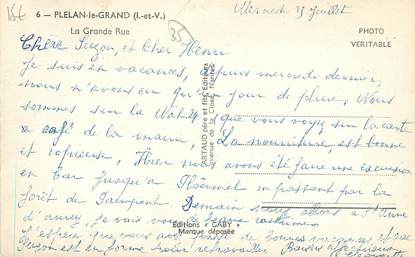 6 — PLELAN-le-GRAND (I.-et-V.)
La Grande Rue
Mercredi 23 juillet
PHOTO
VERITABLE
35
Chère Suzon, et Cher Henri
Je suis en vacances, depuis mercredi dernier,
nous n'avons eu qu'un jour de pluie, Nous
sommes sur la Nat 24
que vous voyez sur la carte
café de la mairie, La nourriture, est bonne
et copieuse, Hier nous avons été faire une excursion
en car jusqu'a Ploërmel en passant par la
forêt de Paimpont. Demain nous allons à Ste Anne
d'auray, Je vais voir de beaux costumes
J'espère que vous avez passé de bonnes vacances et que
Suzon est en forme pour retravailler. Baisers affectueux
ARTAUD père et fils, Editeurs
avenue de la Close, Nantes
Editions "GABY"
Marque déposée